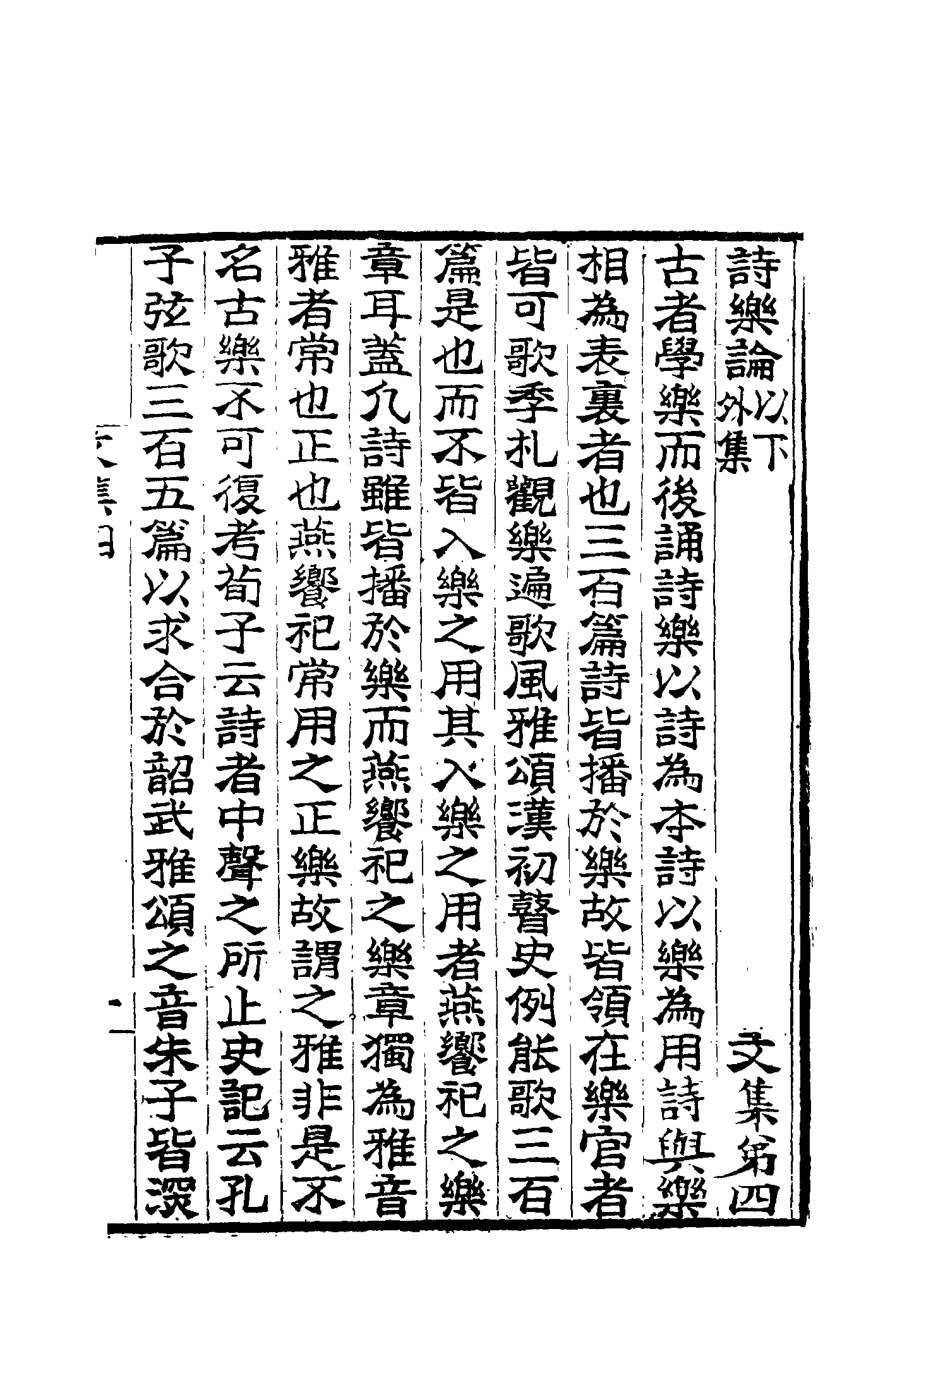 詩樂論以下外集　文集第四
古者學樂而後誦詩樂以詩為本詩以樂為用詩與樂
相為表裏者也三百篇詩皆播於樂故皆領在樂官者
皆可歌季札觀樂遍歌風雅頌漢初瞽史例能歌三百
篇是也而不皆入樂之用其入樂之用者燕饗祀之樂
章耳蓋凡詩雖皆播於樂而燕饗祀之樂章獨為雅音
雅者常也正也燕饗祀常用之正樂故謂之雅非是不
名古樂不可復考荀子云詩者中聲之所止史記云孔
子弦歌三百五篇以求合於韶武雅頌之音朱子皆深
文集四
一